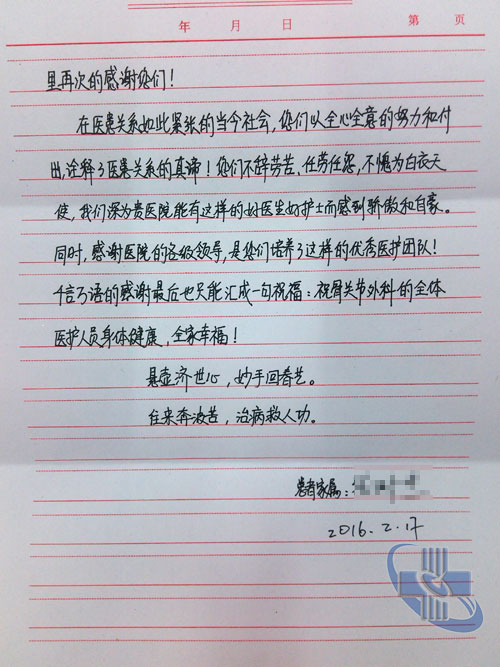 年 月 日 第 页
里再次的感谢您们!
在医患关系如此紧张的当今社会,您们以全心全意的努力和付
出,诠释了医患关系的真谛!您们不辞劳苦、任劳任怨,不愧为白衣天
使,我们深为贵医院能有这样的好医生好护士而感到骄傲和自豪。
同时,感谢医院的各级领导,是您们培养了这样的优秀医护团队!
千言万语的感谢最后也只能汇成一句祝福:祝骨关节外科的全体
医护人员身体健康,全家幸福!
悬壶济世心,妙手回春艺。
往来奔波苦,治病救人功。
患者家属:
2016.2.17